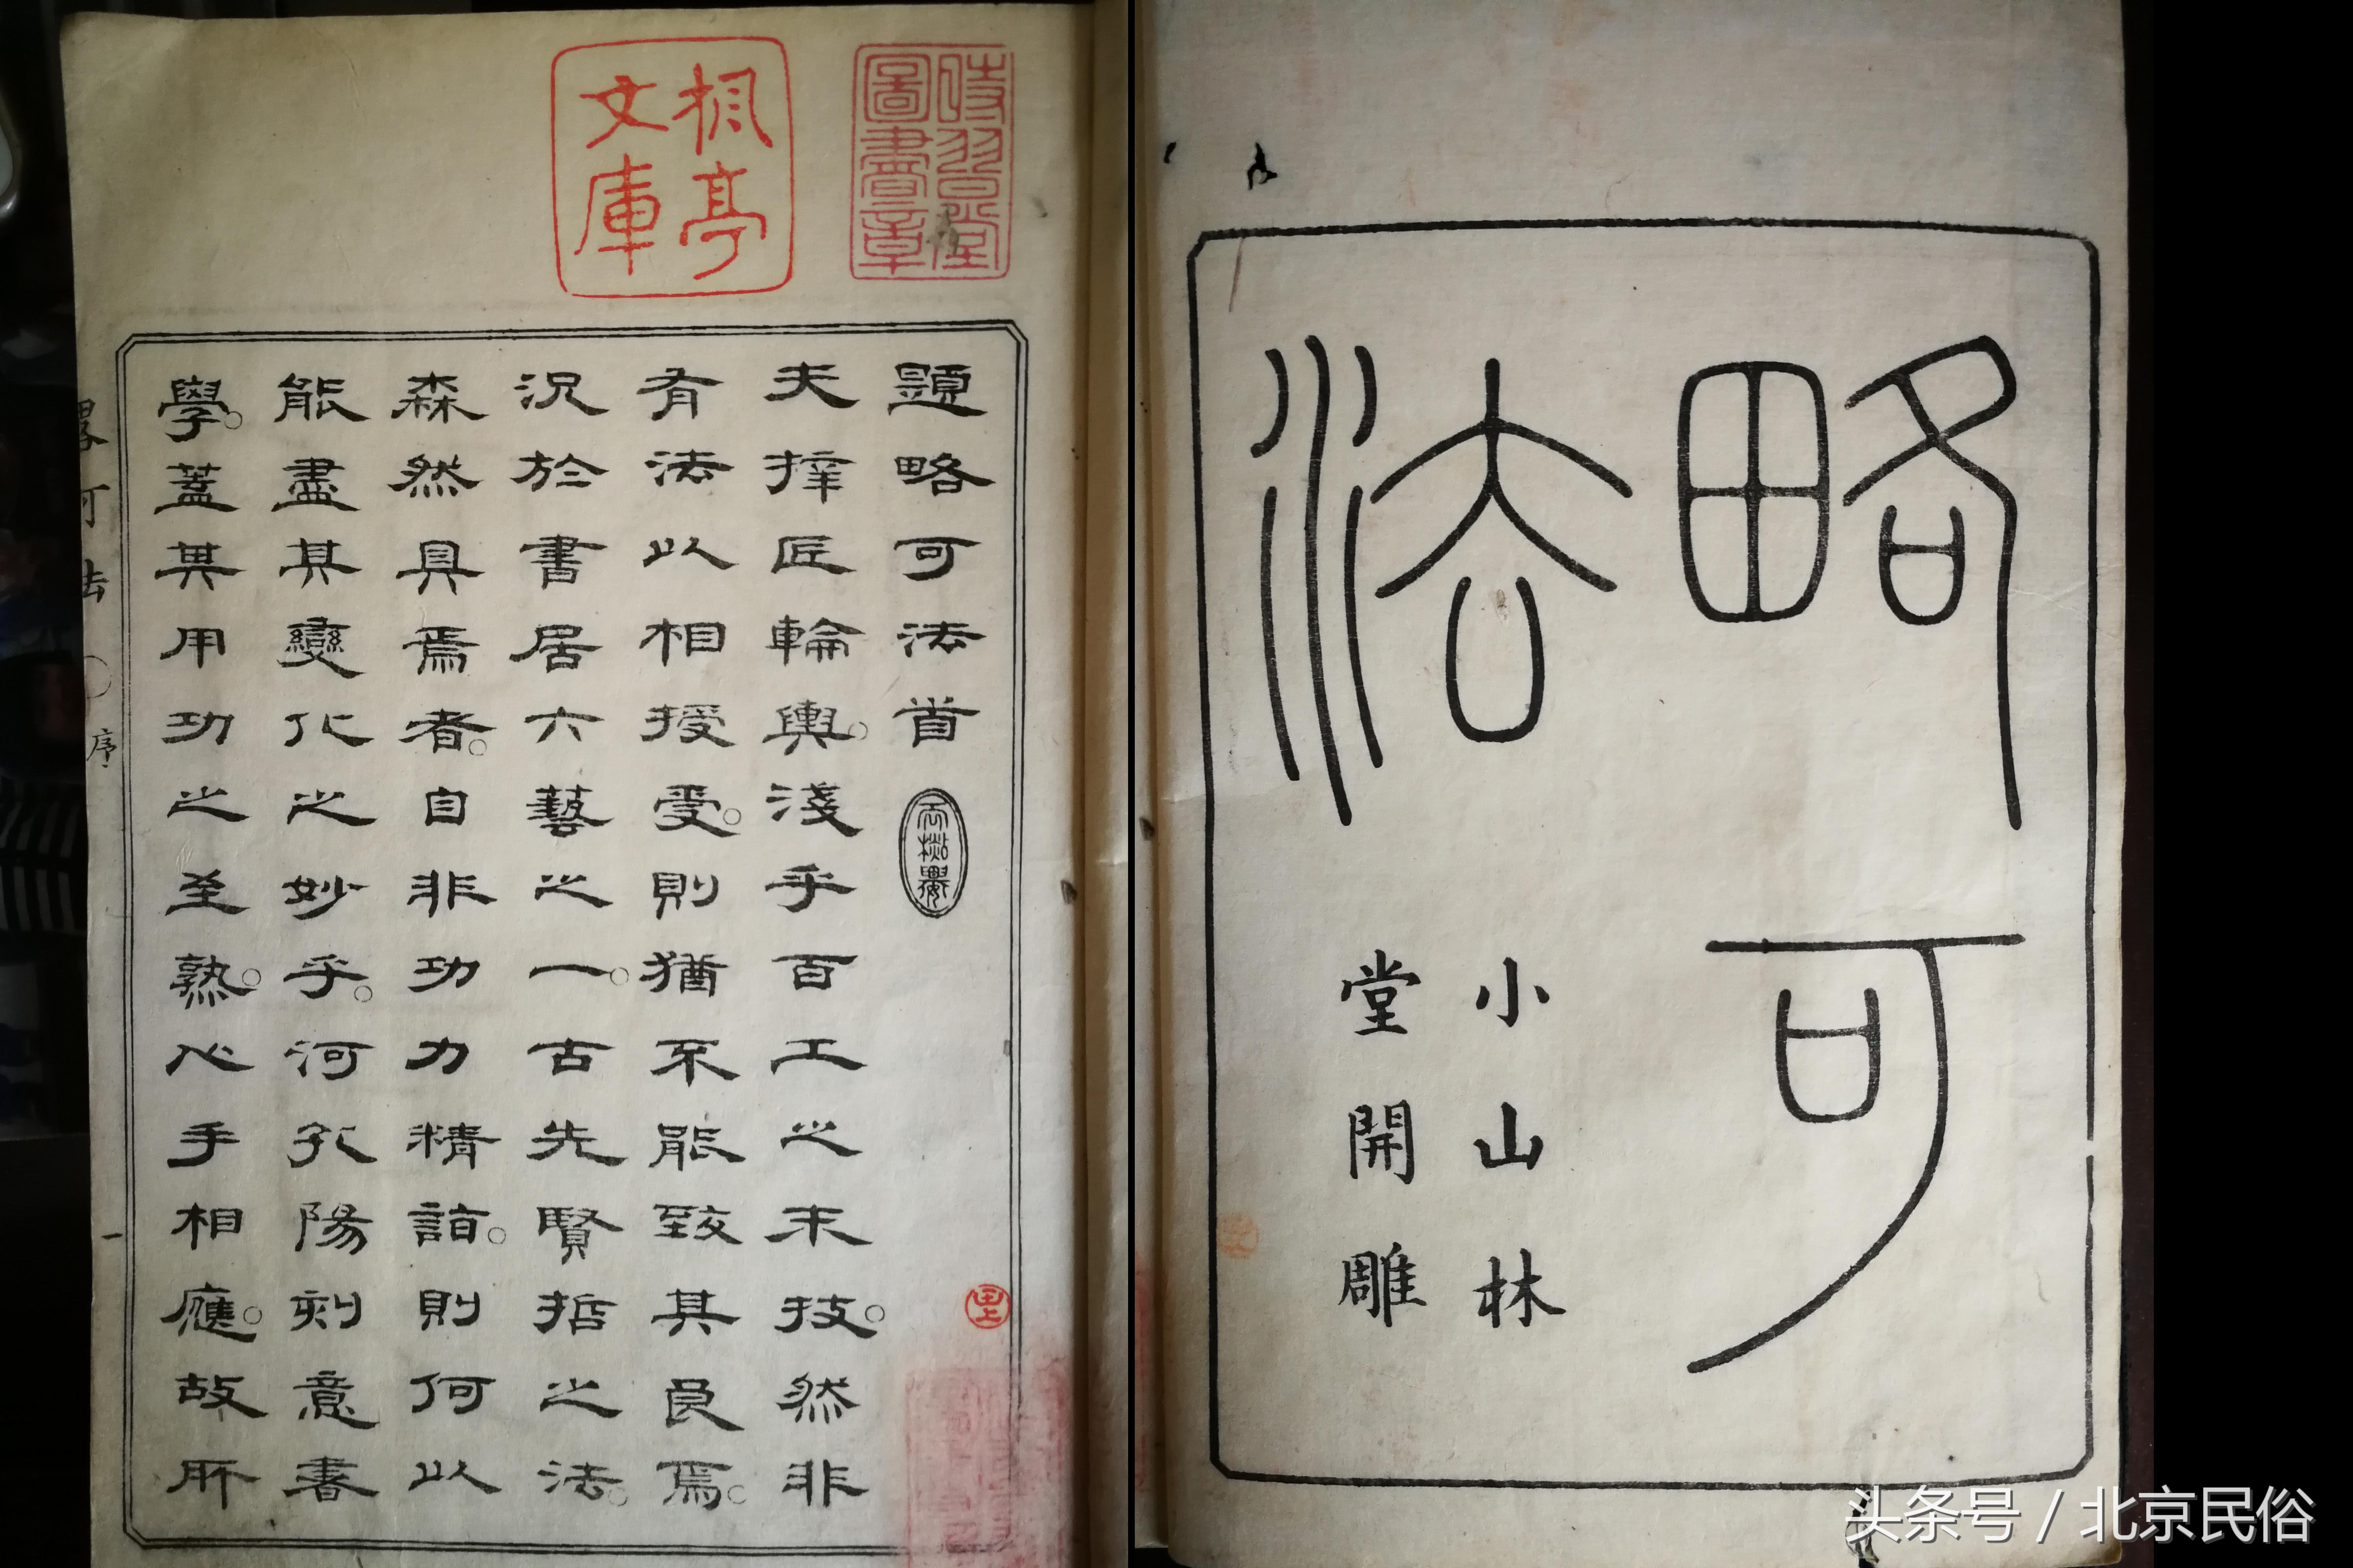 略可
法
小山林
堂開雕
題略可法首
夫梓匠輪輿淺乎百工之末技然非
有法以相授受則猶不能致其良焉
況於書居六藝之一古先賢哲之法
森然具焉者自非功力精詣則何以
能盡其變化之妙乎河孔陽刻意書
學蓋其用功之至熟心手相應故所
略可法
序
一
楓亭
文庫
時習堂
圖書章
头条号 / 北京民俗